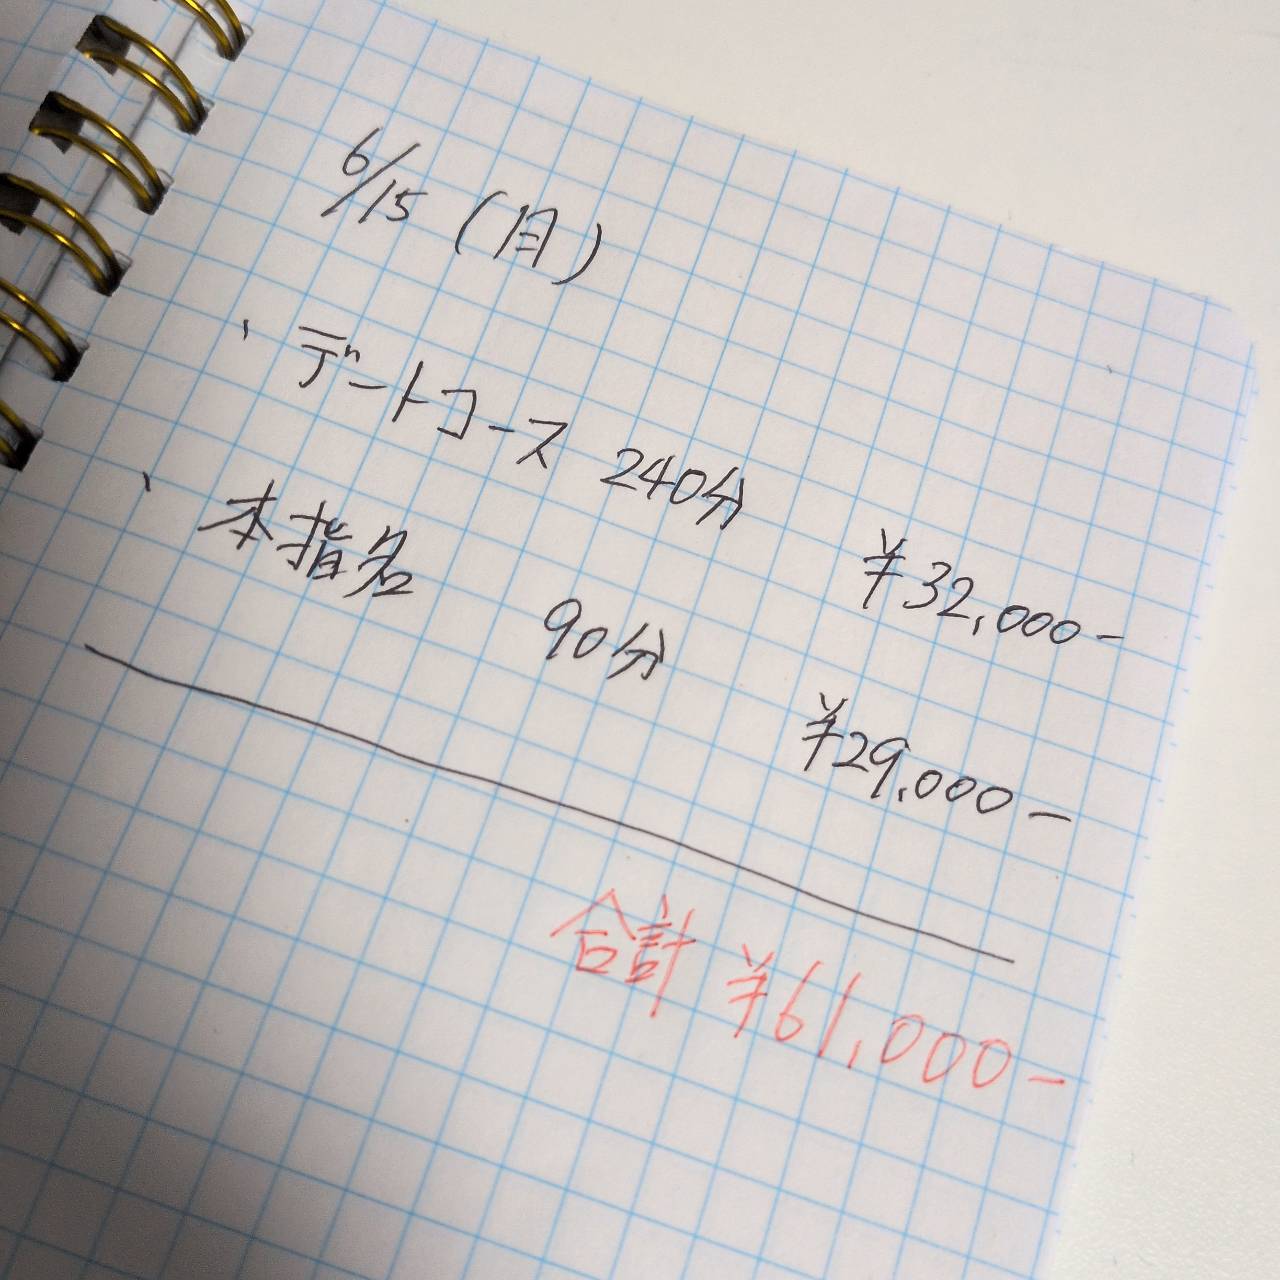 6/15 (月)
、デートコース 240分 ¥32,000-
、本指名 90分 ¥29,000-
合計 ¥61,000-